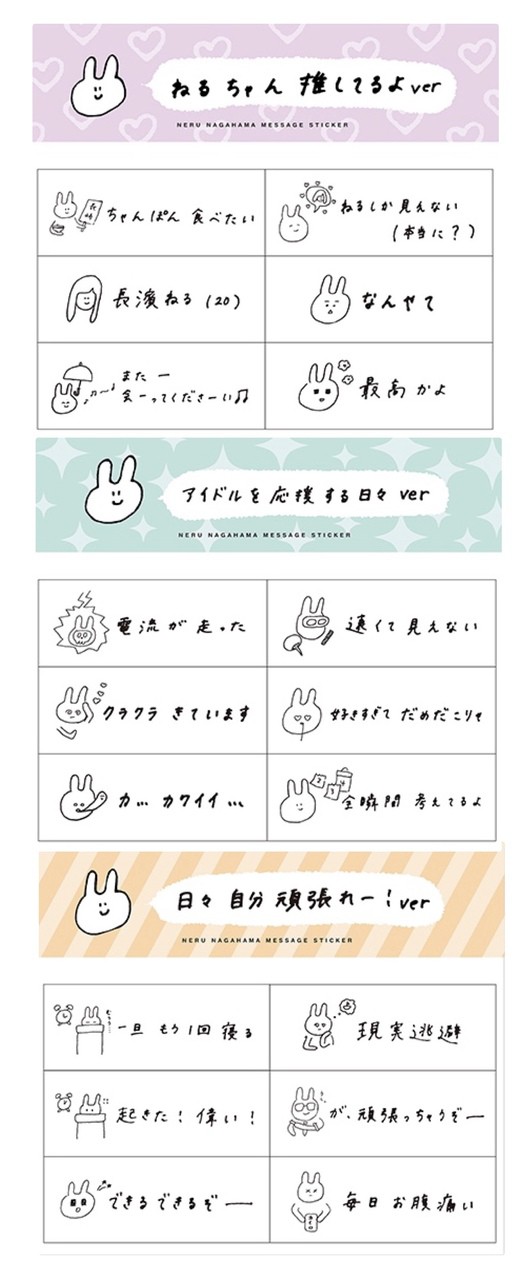 ねるちゃん 推してるよ ver
NERU NAGAHAMA MESSAGE STICKER
長崎
ちゃんぽん 食べたい
ねるしか見えない
(本当に?)
長濱ねる (20)
なんやて
また ー
会ーってくださーい♫
最高かよ
アイドルを応援する日々 ver
NERU NAGAHAMA MESSAGE STICKER
電流が走った
遠くて見えない
クラクラ きています
好きすぎて だめだこりゃ
カ… カワイイ …
全瞬間 考えてるよ
日々 自分 頑張れー! ver
NERU NAGAHAMA MESSAGE STICKER
一旦 もう1回 寝る
現実逃避
起きた! 偉い!
が、頑張っちゃうぞー
できるできるぞー
毎日 お腹痛い